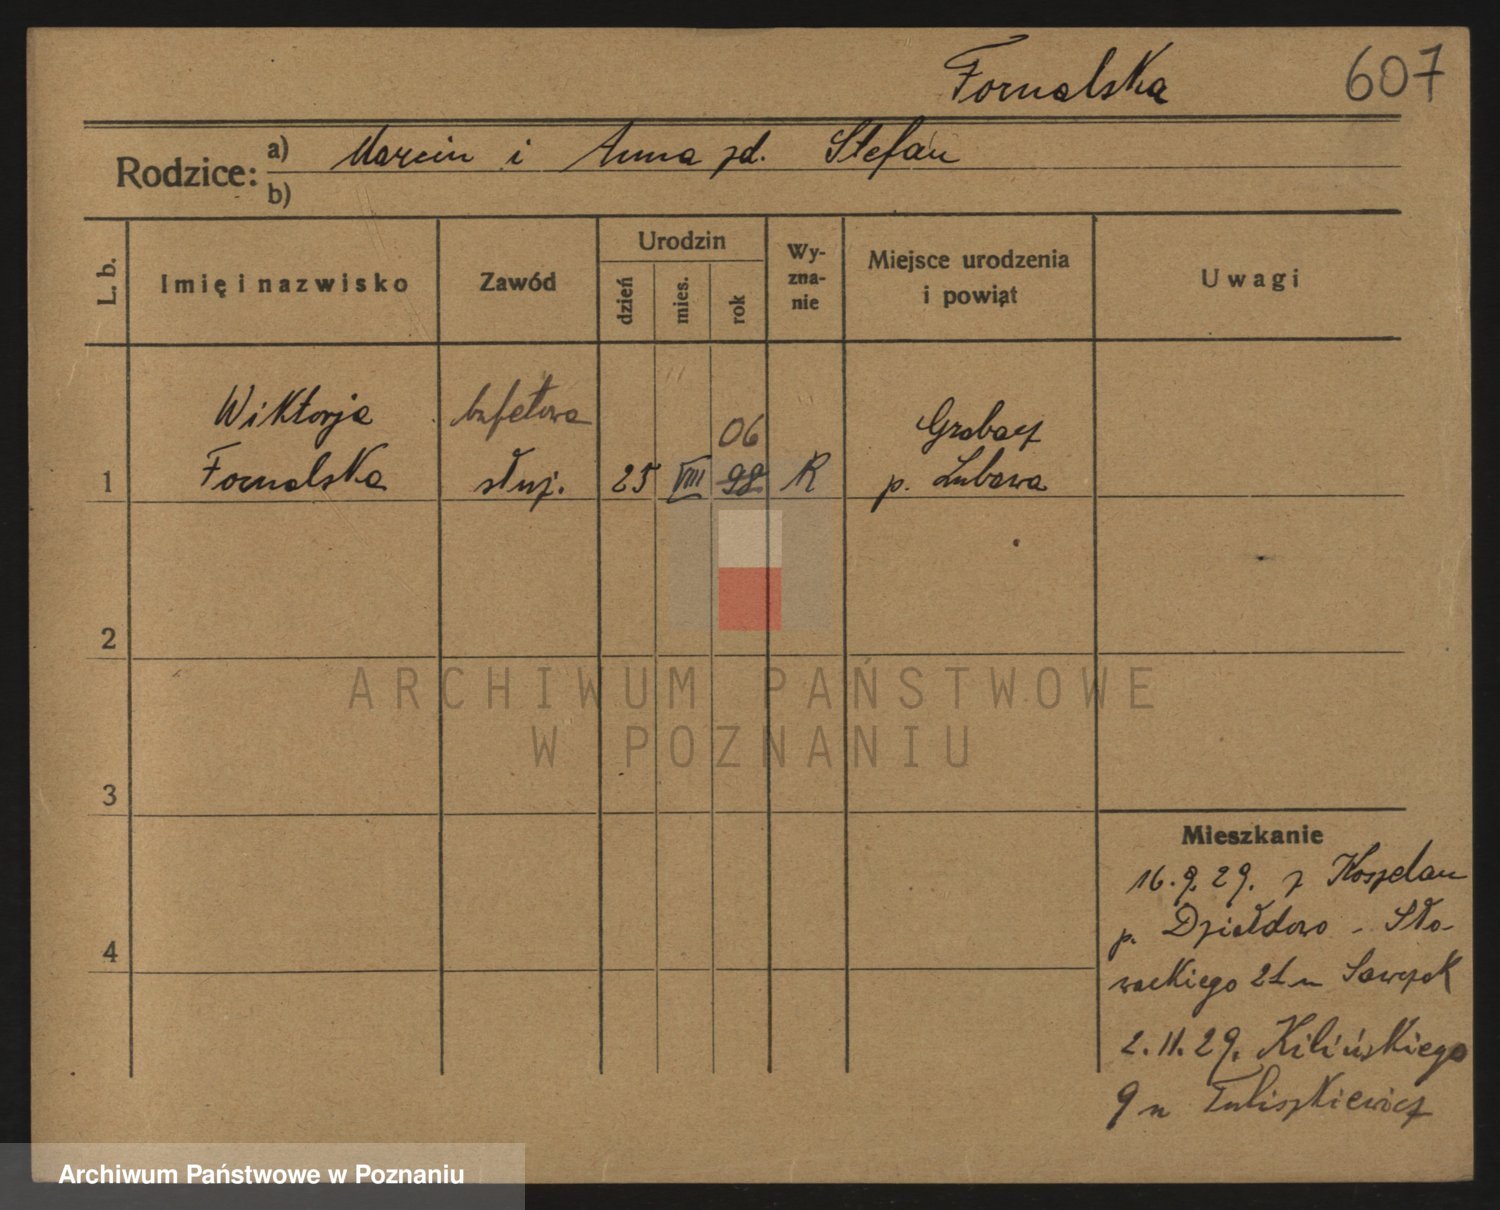 Fornalska
607
Rodzice: a) Marcin i Anna zd. Stefan
b)
L. b.
Imię i nazwisko
Zawód
Urodzin
dzień
mies.
rok
Wy-
zna-
nie
Miejsce urodzenia
i powiąt
Uwagi
Wiktorja bufetowa 06
1 Fornalska służ. 25 VIII 98 R
Grabacz
p. Lubawa
2
3
4
Mieszkanie
16.9.29. z Koszelan
p. Działdowo - Sło-
wackiego 21 u
2.11.29. Kilińskiego
9 u Tuliszkiewicz
ARCHIWUM PAŃSTWOWE
W POZNANIU
Archiwum Państwowe w Poznaniu